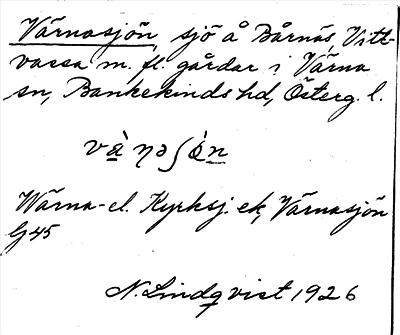 Värnasjön, sjö å Bårnäs, Vitt-
vassa m. fl. gårdar i Värna
sn, Bankekinds hd, Österg. l.
Wärna- el. Kyrksj. ek, Värnasjön
G 45
N. Lindqvist 1926